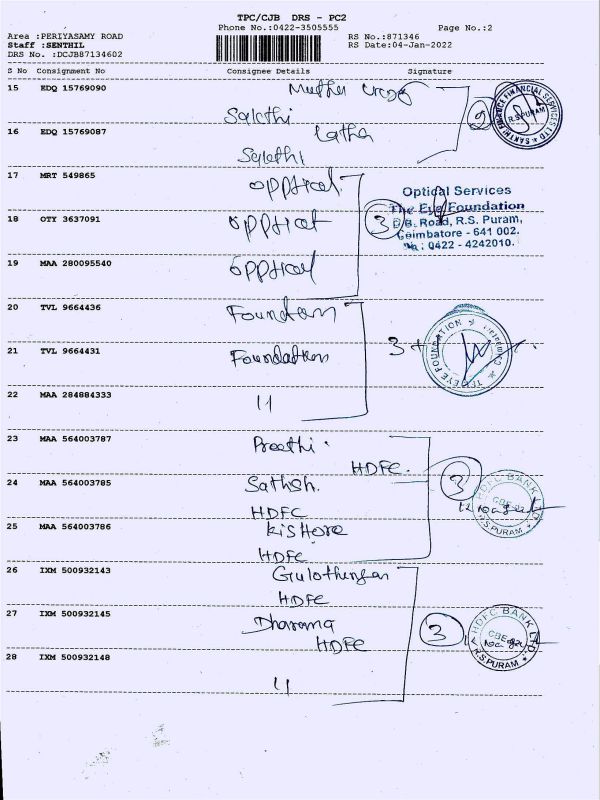 TPC/CJB DRS - PC2
Phone No.:0422-3505555 Page No.:2
Area :PERIYASAMY ROAD RS No.:871346
Staff :SENTHIL RS Date:04-Jan-2022
DRS No. :DCJB87134602
S No Consignment No Consignee Details Signature
15 EDQ 15769090
Sakthi
16 EDQ 15769087 Latha
Sakthi
17 MRT 549865 opptical
18 OTY 3637091 opptical
19 MAA 280095540 opptical
3
Optical Services
The Eye Foundation
D.B. Road, R.S. Puram,
Coimbatore - 641 002.
0422 - 4242010.
SAKTHI FINANCE FINANCIAL SERVICES LTD
R.S PURAM
20 TVL 9664436 Foundation
21 TVL 9664431 Foundation
22 MAA 284884333 11
3
THE EYE FOUNDATION
23 MAA 564003787 Preethi
HDFC
24 MAA 564003785 Sathish.
HDFC
25 MAA 564003786 Kishore
HDFC
3
HDFC BANK LTD
R.S PURAM
26 IXM 500932143
HDFC
27 IXM 500932145 Dharama
HDFC
28 IXM 500932148 11
3
HDFC BANK LTD.
R.S PURAM